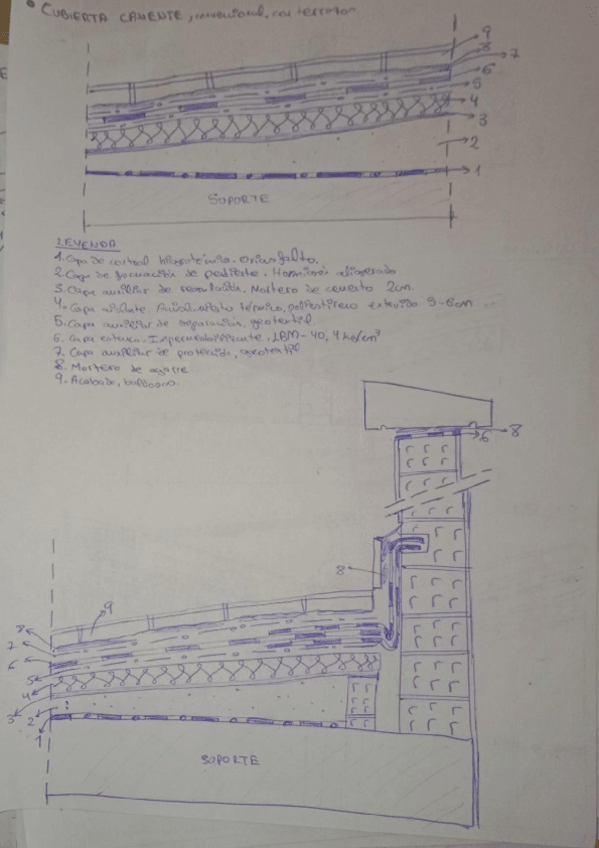 CUBIERTA CALIENTE, convencional, con terrazo
9
8
7
6
5
4
3
2
1
SOPORTE
LEYENDA
1. Capa de control higrotérmico. Oxiasfalto.
2. Capa de formación de pendiente. Hormigón aligerado
3. Capa auxiliar de regulación. Mortero de cemento 2cm.
4. Capa aislante térmico, poliestireno extruido 5-6cm
5. Capa auxiliar de separación, geotextil.
6. Capa estanca. Impermeabilizante. LBM-40, 4 kg/cm³
7. Capa auxiliar de protección, geotextil.
8. Mortero de agarre
9. Acabado, baldosas.
6
8
8
9
8
7
6
5
4
3
2
1
SOPORTE